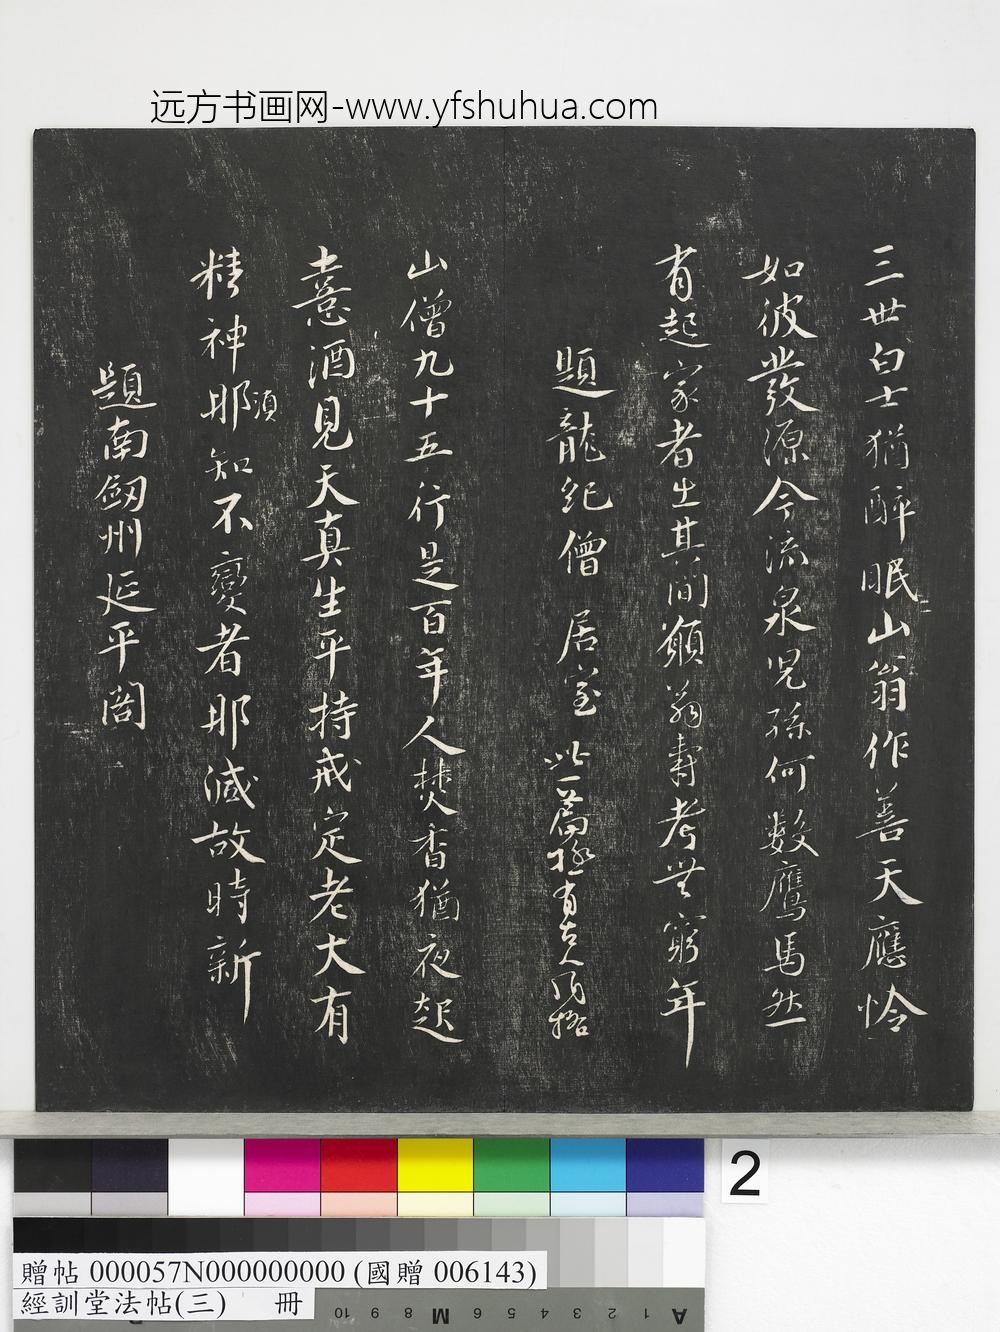 远方书画网-www.yfshuhua.com
三世白士猶醉眠山翁作善天應怜
如彼發源今流泉兒孫何數鷹馬然
有起家者生其間願翁壽考無窮年
題龍紀僧居室 此一篇極有古人風格
山僧九十五行是百年人焚香猶夜起
憙酒見天真生平持戒定老大有
精神耶須知不變者那減故時新
題南劔州延平閤
2
贈帖 000057N000000000 (國贈 006143)
經訓堂法帖(三) 冊
10 9 8 M 6 5 4 3 2 1 A